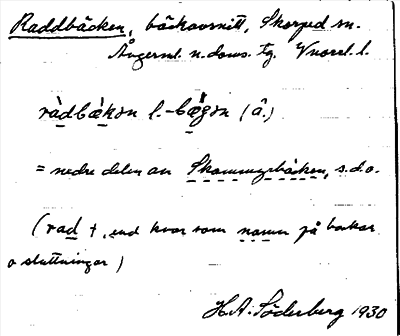 Raddbäcken, bäckavsnitt, Skorped sn.
Ångerml. n. doms. tg. Vnorrl. l.
ràdbäkɜn l. -bägɜn (â.)
= nedre delen av Skammyrbäcken, s.d.o.
(rad †, end kvar som namn på backar
o sluttningar)
H.A. Söderberg 1930